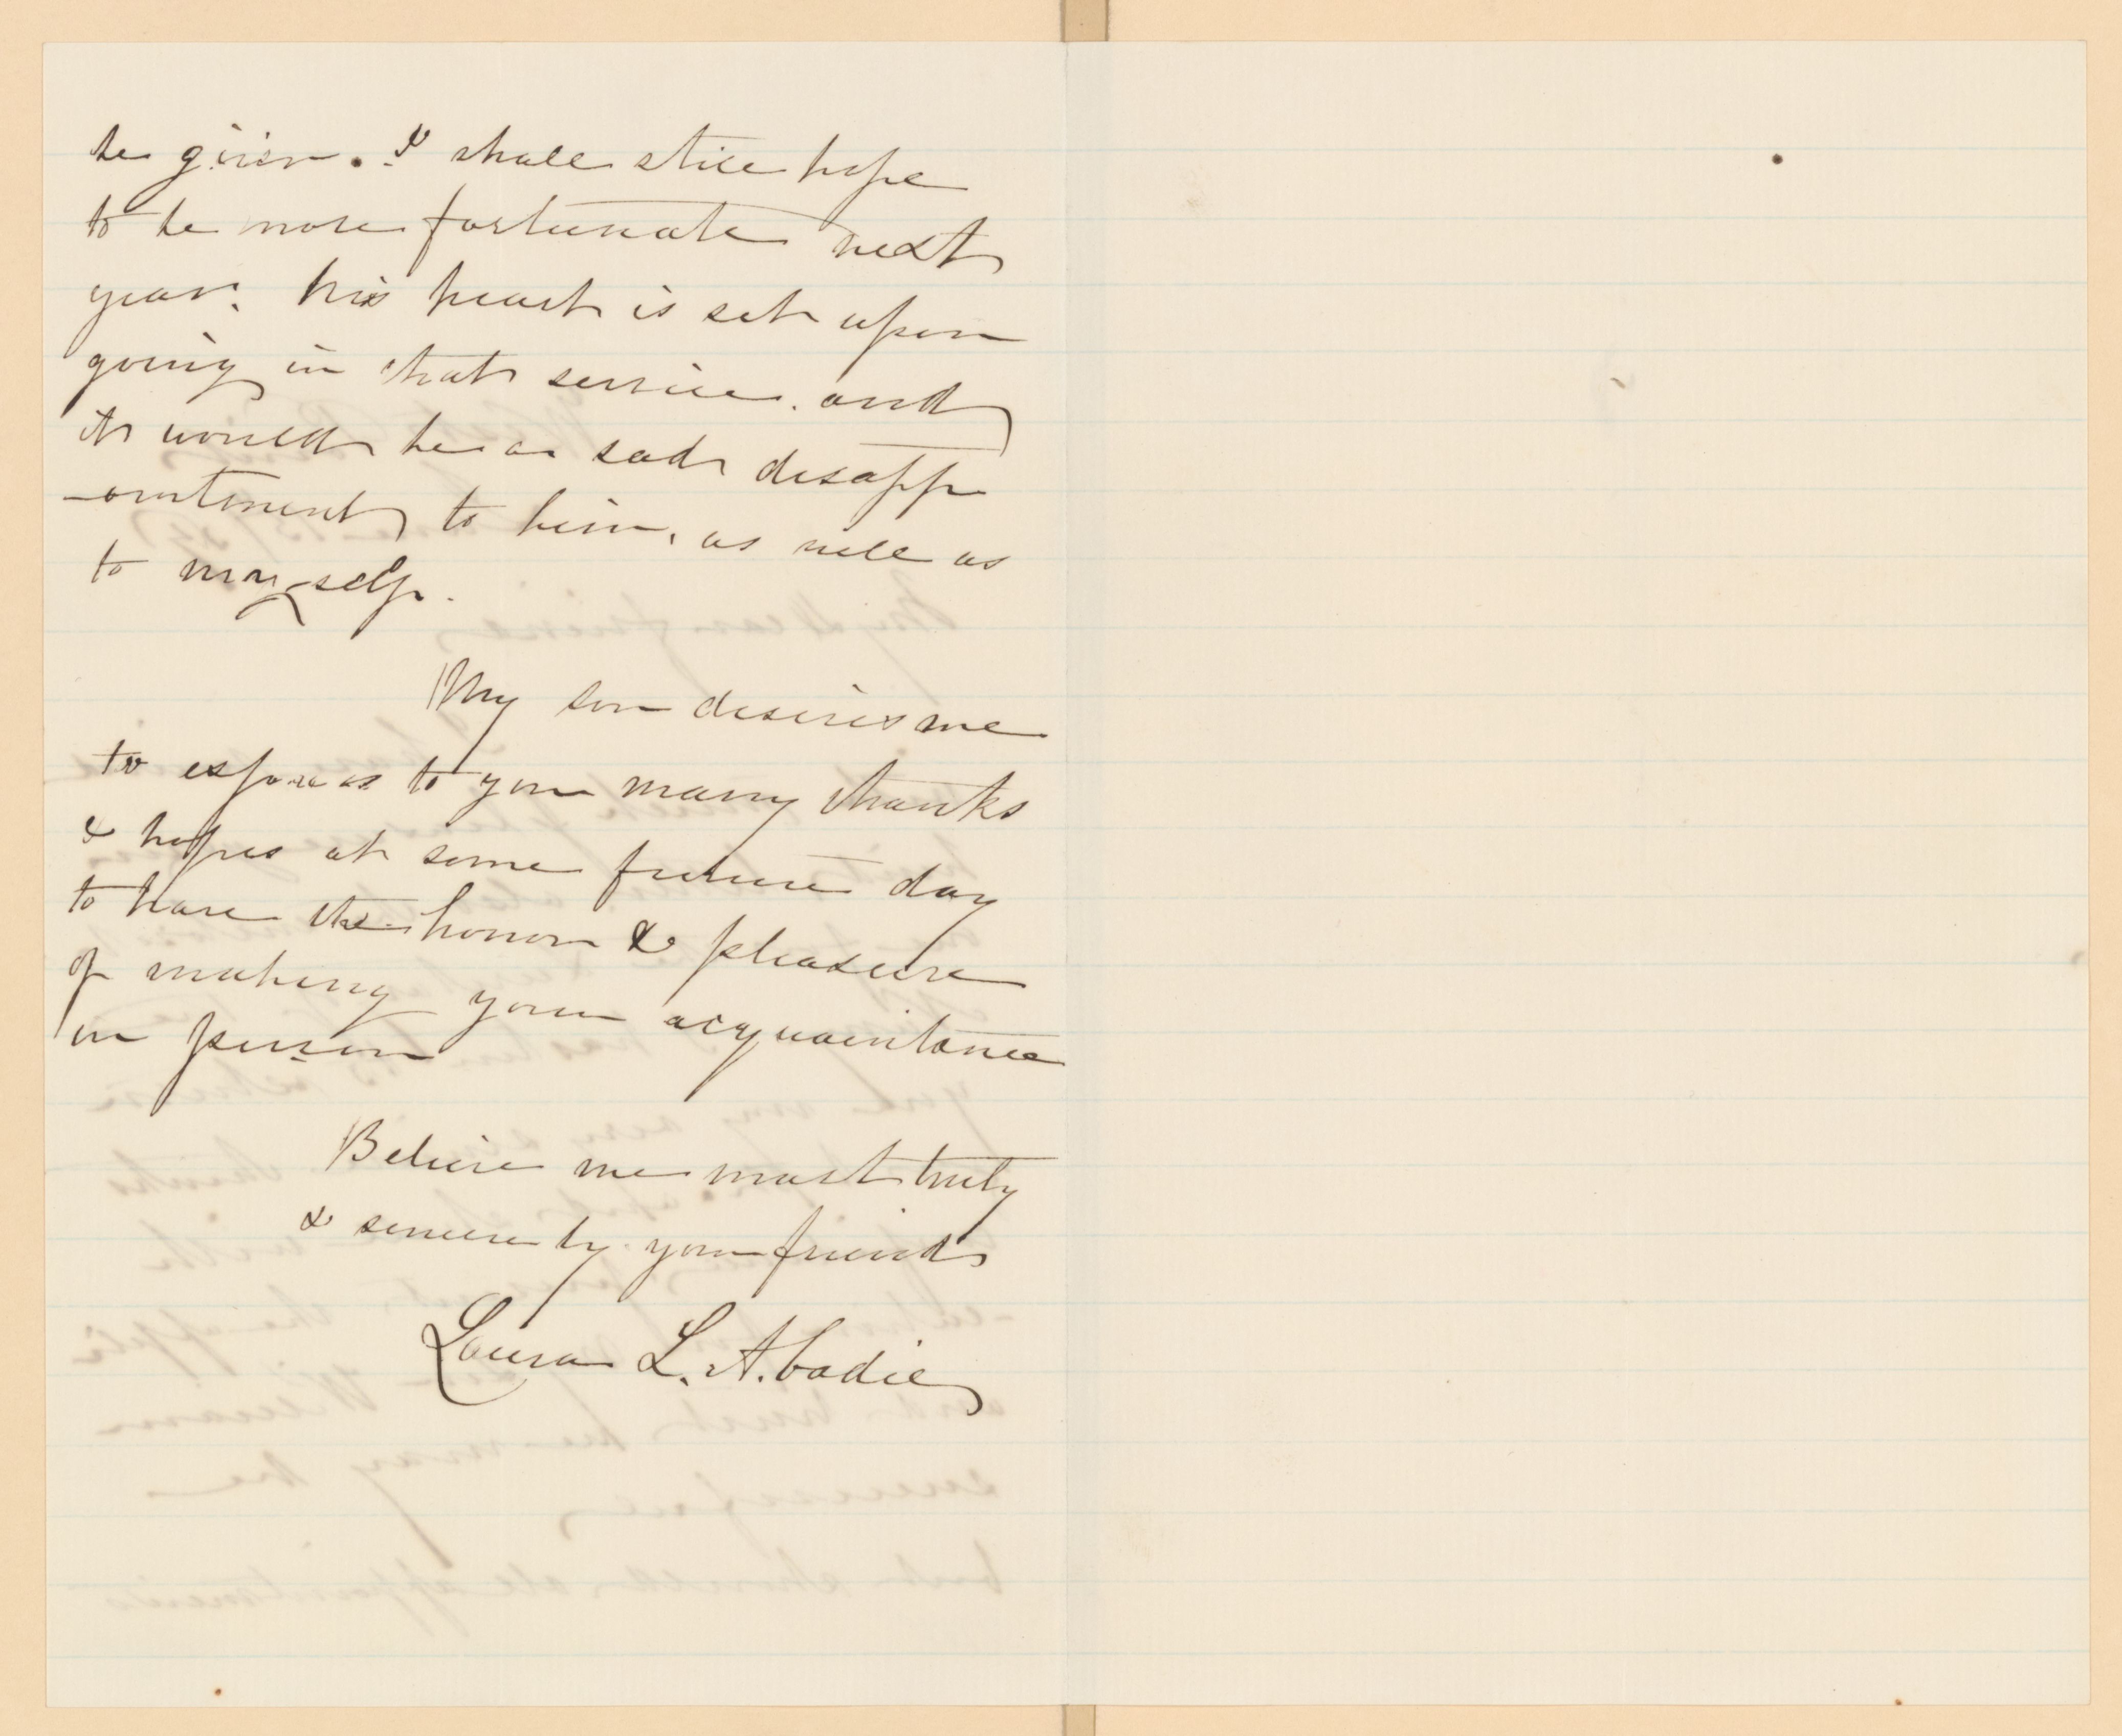 be given. I shall still hope
to be more fortunate next
year. his heart is set upon
going in that service. and
it would be a sad disapp
-ointment to him, as well as
to myself.
My son desires me
to express to you many thanks
& hopes at some future day
to have the honor & pleasure
of making your acquaintance
in person
Believe me most truly
& sincerely your friend
Laura L. Abadie